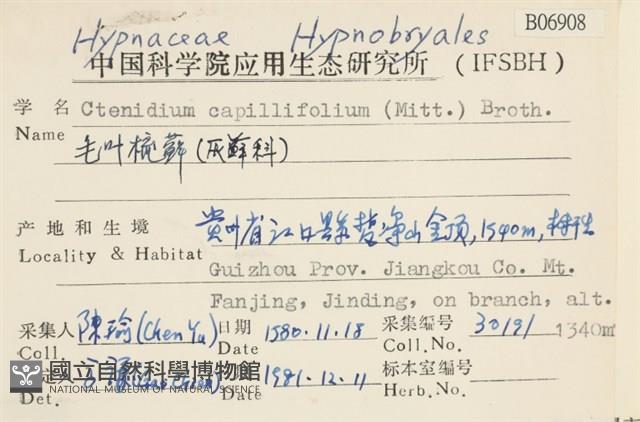 B06908
Hypnaceae Hypnobryales
中国科学院应用生态研究所 (IFSBH)
学 名 Ctenidium capillifolium (Mitt.) Broth.
Name 毛叶梳藓(灰藓科)
产地和生境 贵州省江口县梵净山金顶,1540m,树生
Locality & Habitat Guizhou Prov. Jiangkou Co. Mt.
Fanjing, Jinding, on branch, alt.
采集人 陳瑜(Chen Yu) 日期 1980.11.18 采集编号 30191 1340m
Coll. Date Coll.No.
1981.12.11 标本室编号
Det. Date Herb.No.
國立自然科學博物館
NATIONAL MUSEUM OF NATURAL SCIENCE